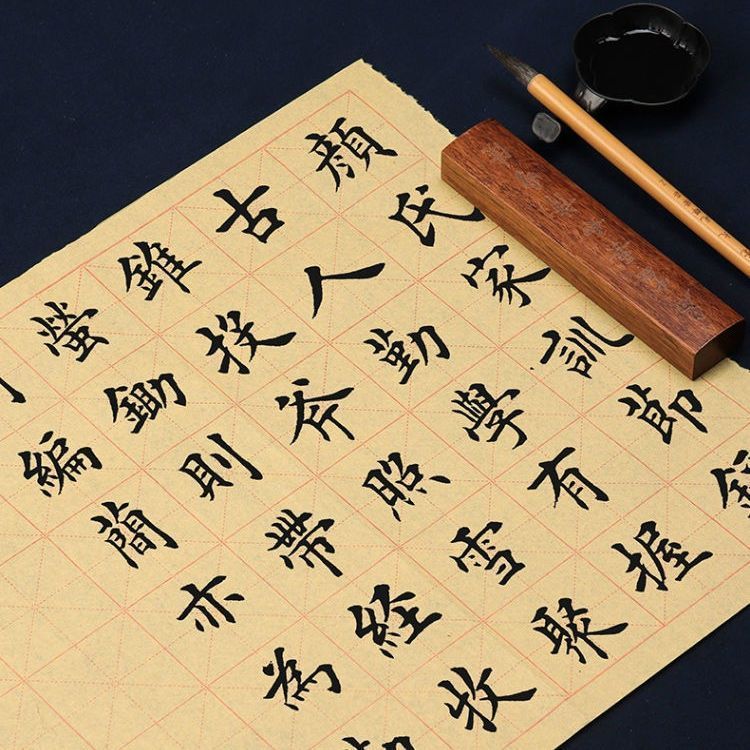 顏氏家訓節
古人勤學有握
錐投斧照雪聚
螢鋤則帶經牧
編簡亦為